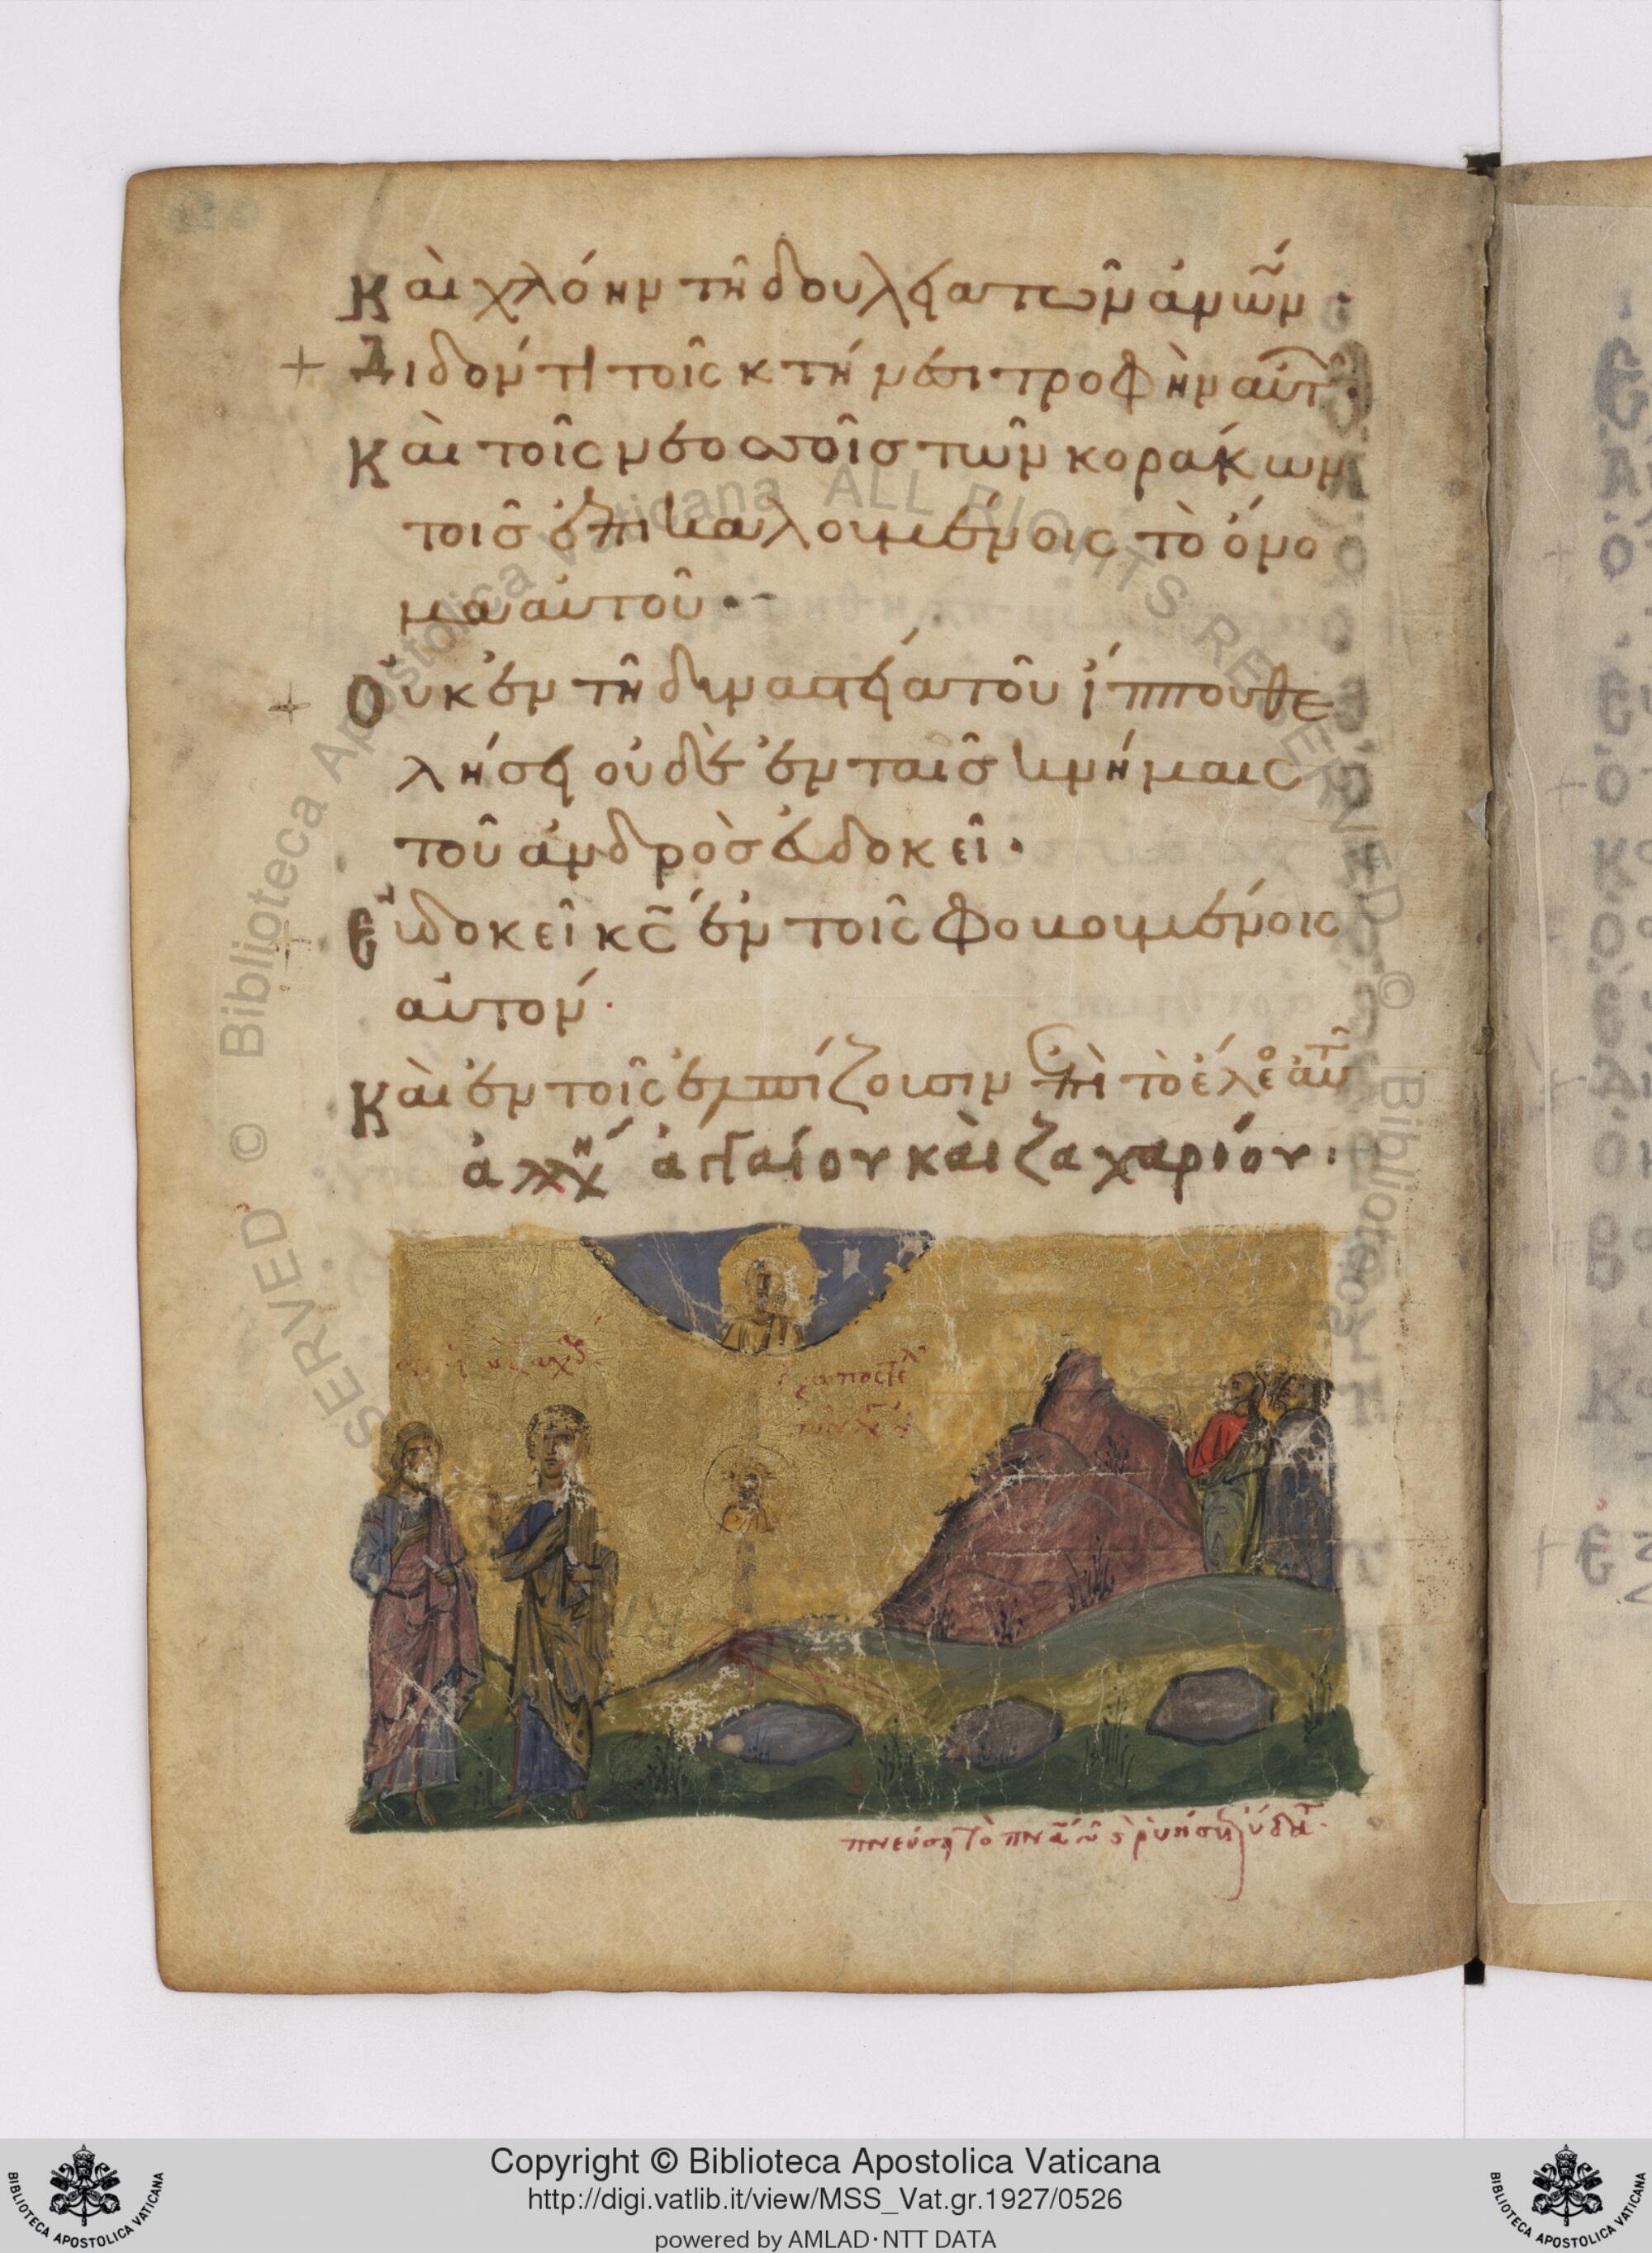 Καὶ χλόην τῆ δουλεία τῶν ἀνων̅·
Διδόντι τοῖς κτήνεσι τροφὴν αὐτ̅·
Καὶ τοῖς νεοσσοῖς τῶν κοράκων
τοῖς ἐπικαλουμένοις τὸ ὄνο
μα αὐτοῦ··-
Οὐκ ἐν τῆ δυναστεία τοῦ ἵππου θε
λήσει οὐδὲ ἐν ταῖς κνήμαις
τοῦ ἀνδρὸς εὐδοκεῖ·
Εὐδοκεῖ κς̅ ἐν τοῖς φοβουμένοις
αὐτόν·
Καὶ ἐν τοῖς ἐλπίζουσιν ἐπὶ τὸ ἔλεο αὐτ̅
ἀγγαίου καὶ ζαχαρίου·
ἐξαποστελ
πνεύσει τὸ πνα̅ ῥυήσετ ὕδατ·
SERVED © Biblioteca Apostolica Vaticana ALL RIGHTS RESERVED © Biblioteca
Copyright © Biblioteca Apostolica Vaticana
http://digi.vatlib.it/view/MSS_Vat.gr.1927/0526
powered by AMLAD·NTT DATA
BIBLIOTECA APOSTOLICA VATICANA
BIBLIOTECA APOSTOLICA VATICANA